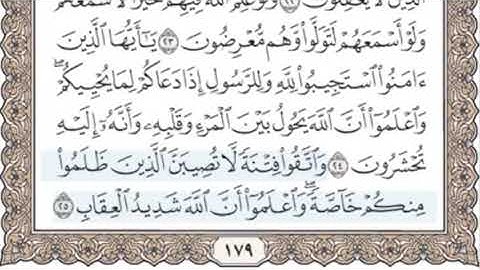 الَّذِينَ لَا يَعْقِلُونَ ﴿٢٢﴾ وَلَوْ عَلِمَ اللَّهُ فِيهِمْ خَيْرًا لَّأَسْمَعَهُمْ
وَلَوْ أَسْمَعَهُمْ لَتَوَلَّوا۟ وَّهُم مُّعْرِضُونَ ﴿٢٣﴾ يَٰٓأَيُّهَا الَّذِينَ
ءَامَنُوا۟ اسْتَجِيبُوا۟ لِلَّهِ وَلِلرَّسُولِ إِذَا دَعَاكُمْ لِمَا يُحْيِيكُمْ ۖ
وَاعْلَمُوٓا۟ أَنَّ اللَّهَ يَحُولُ بَيْنَ الْمَرْءِ وَقَلْبِهِۦ وَأَنَّهُۥٓ إِلَيْهِ
تُحْشَرُونَ ﴿٢٤﴾ وَاتَّقُوا۟ فِتْنَةً لَّا تُصِيبَنَّ الَّذِينَ ظَلَمُوا۟
مِنكُمْ خَآصَّةً ۖ وَاعْلَمُوٓا۟ أَنَّ اللَّهَ شَدِيدُ الْعِقَابِ ﴿٢٥﴾
١٧٩